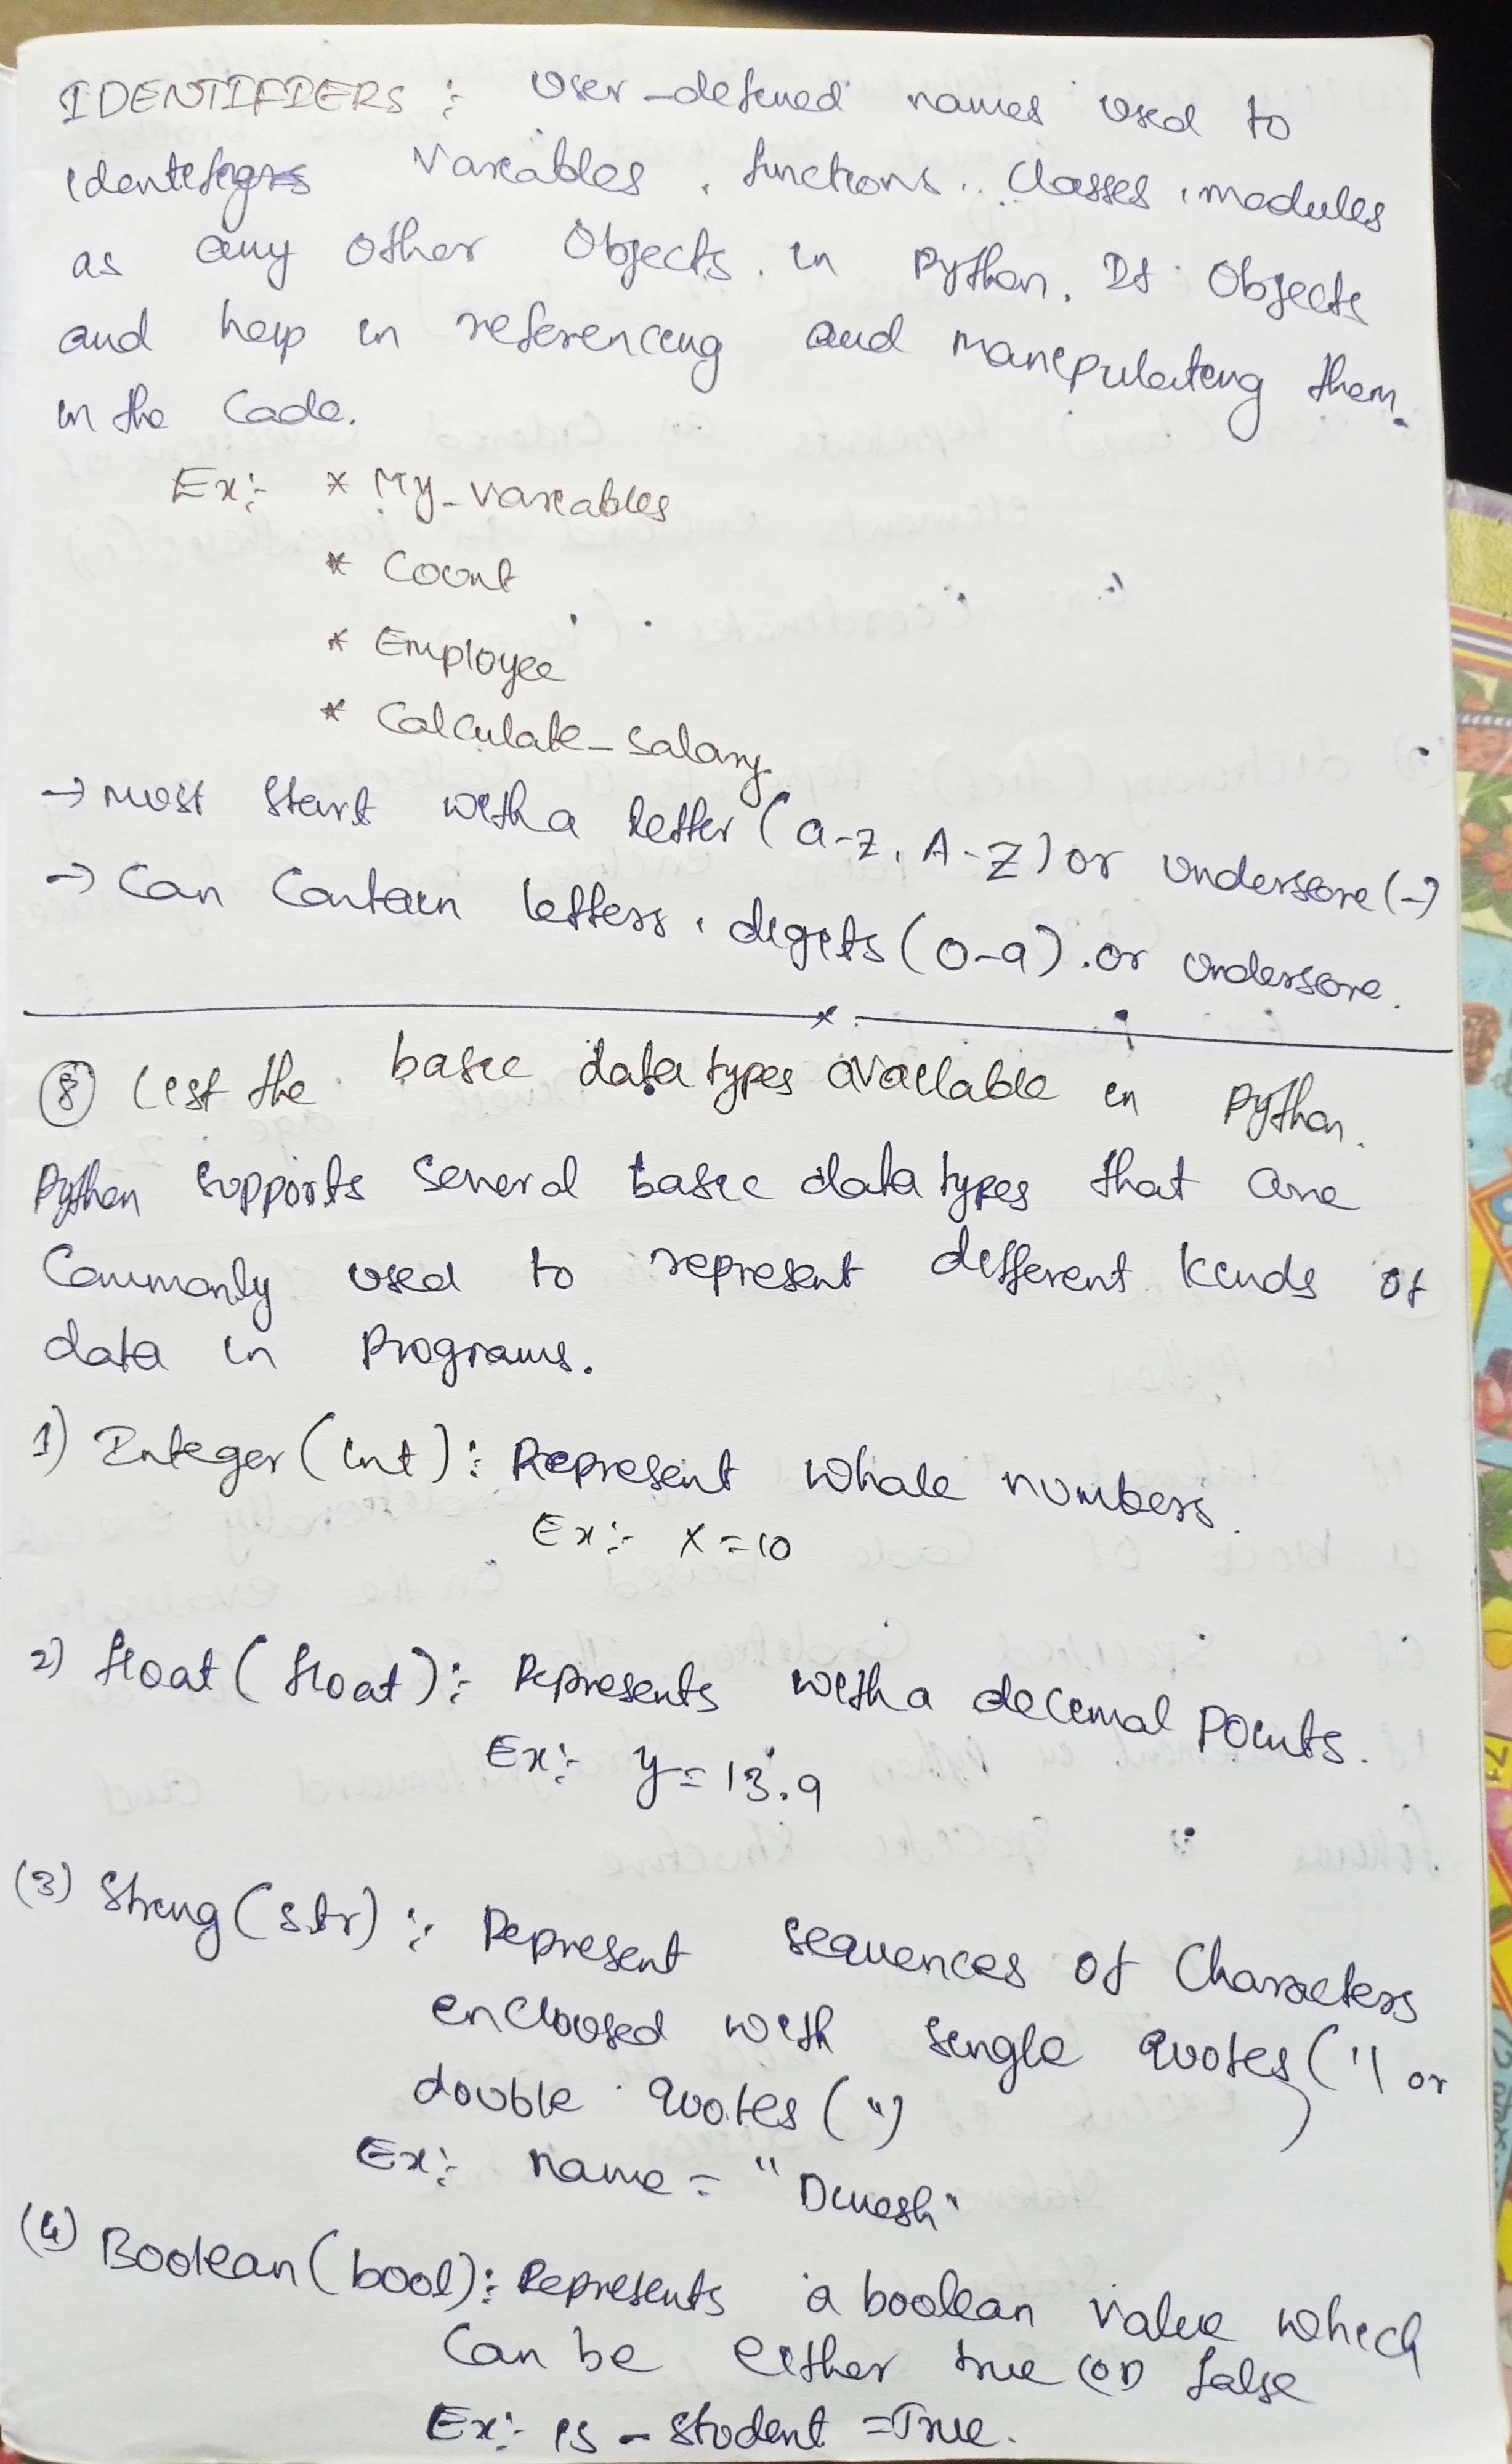 IDENTIFIERS :- User-defined names used to
identifyrs Variables, functions, Classes, modules
as any other Objects. in Python. It Objects
and help in referencing and manipulating them.
in the Code.
Ex:- * My_variables
* Count
* Employee
* Calculate_salary
→ must start with a letter (a-z, A-Z) or underscore (_)
→ Can Contain letters, digits (0-9). or underscore.
(8) List the basic data types available in Python.
Python supports several basic data types that are
Commonly used to represent different kinds of
data in Programs.
1) Integer (int) :- Represent whole numbers.
Ex:- x=10
2) float (float) :- Represents with a decimal points.
Ex:- y=13.9
(3) String (str) :- Represent sequences of Characters
encloused with single quotes (') or
double quotes (")
Ex:- name = "Dinesh"
(4) Boolean (bool) :- Represents a boolean value which
Can be either true (or) false
Ex:- is_student =True.